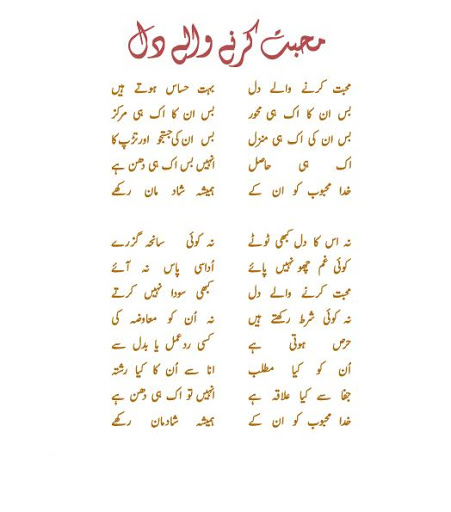 محبت کرنے والے دل
محبت کرنے والے دل بہت حساس ہوتے ہیں
بس ان کا اک ہی محور بس ان کا اک ہی مرکز
بس ان کی اک ہی منزل بس ان کی جستجو اور تڑپ کا
اک ہی حاصل انہیں بس اک ہی دھن ہے
خدا محبوب کو ان کے ہمیشہ شاد مان رکھے
نہ اس کا دل کبھی ٹوٹے نہ کوئی سانحہ گزرے
کوئی غم چھو نہیں پائے اُداسی پاس نہ آئے
محبت کرنے والے دل کبھی سودا نہیں کرتے
نہ کوئی شرط رکھتے ہیں نہ اُن کو معاوضہ کی
حرص ہوتی ہے کسی ردعمل یا بدل سے
اُن کو کیا مطلب انا سے اُن کا کیا رشتہ
جفا سے کیا علاقہ ہے انہیں تو اک ہی دھن ہے
خدا محبوب کو ان کے ہمیشہ شادمان رکھے